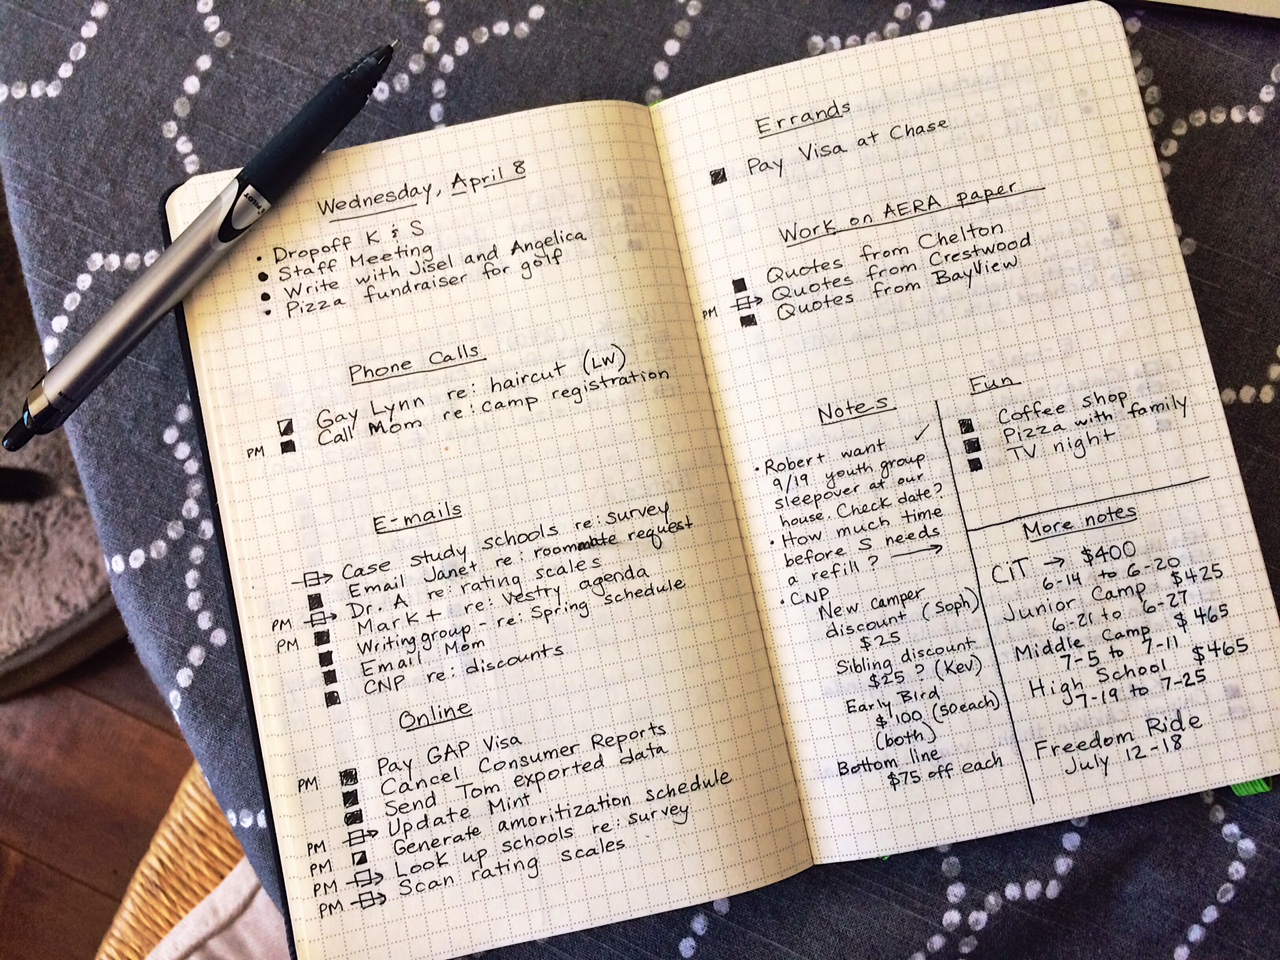 Wednesday, April 8
• Dropoff K & S
• Staff Meeting
• Write with Jisel and Angelica
• Pizza fundraiser for golf
Phone Calls
Gay Lynn re: haircut (LW)
PM Call Mom re: camp registration
E-mails
Case study schools re: survey
Email Janet re: roommate request
PM Dr. A re: rating scales
PM Mark t re: Vestry agenda
Writing group - re: Spring schedule
Email Mom
CNP re: discounts
Online
PM Pay GAP Visa
Cancel Consumer Reports
Send Tom exported data
PM Update Mint
PM Generate amoritization schedule
PM Look up schools re: survey
PM Scan rating scales
Errands
Pay Visa at Chase
Work on AERA paper
Quotes from Chelton
PM Quotes from Crestwood
Quotes from BayView
Notes
• Robert want ✓
9/19 youth group
sleepover at our
house. Check date?
• How much time
before S needs
a refill? →
• CNP
New camper
discount (Soph)
$25
Sibling discount
$25 ? (Kev)
Early Bird
$100 (50 each)
(both)
Bottom line
$75 off each
Fun
Coffee shop
Pizza with family
TV night
More notes
CiT → $400
6-14 to 6-20
Junior Camp $425
6-21 to 6-27
Middle Camp $465
7-5 to 7-11
High School $465
7-19 to 7-25
Freedom Ride
July 12-18
PILOT